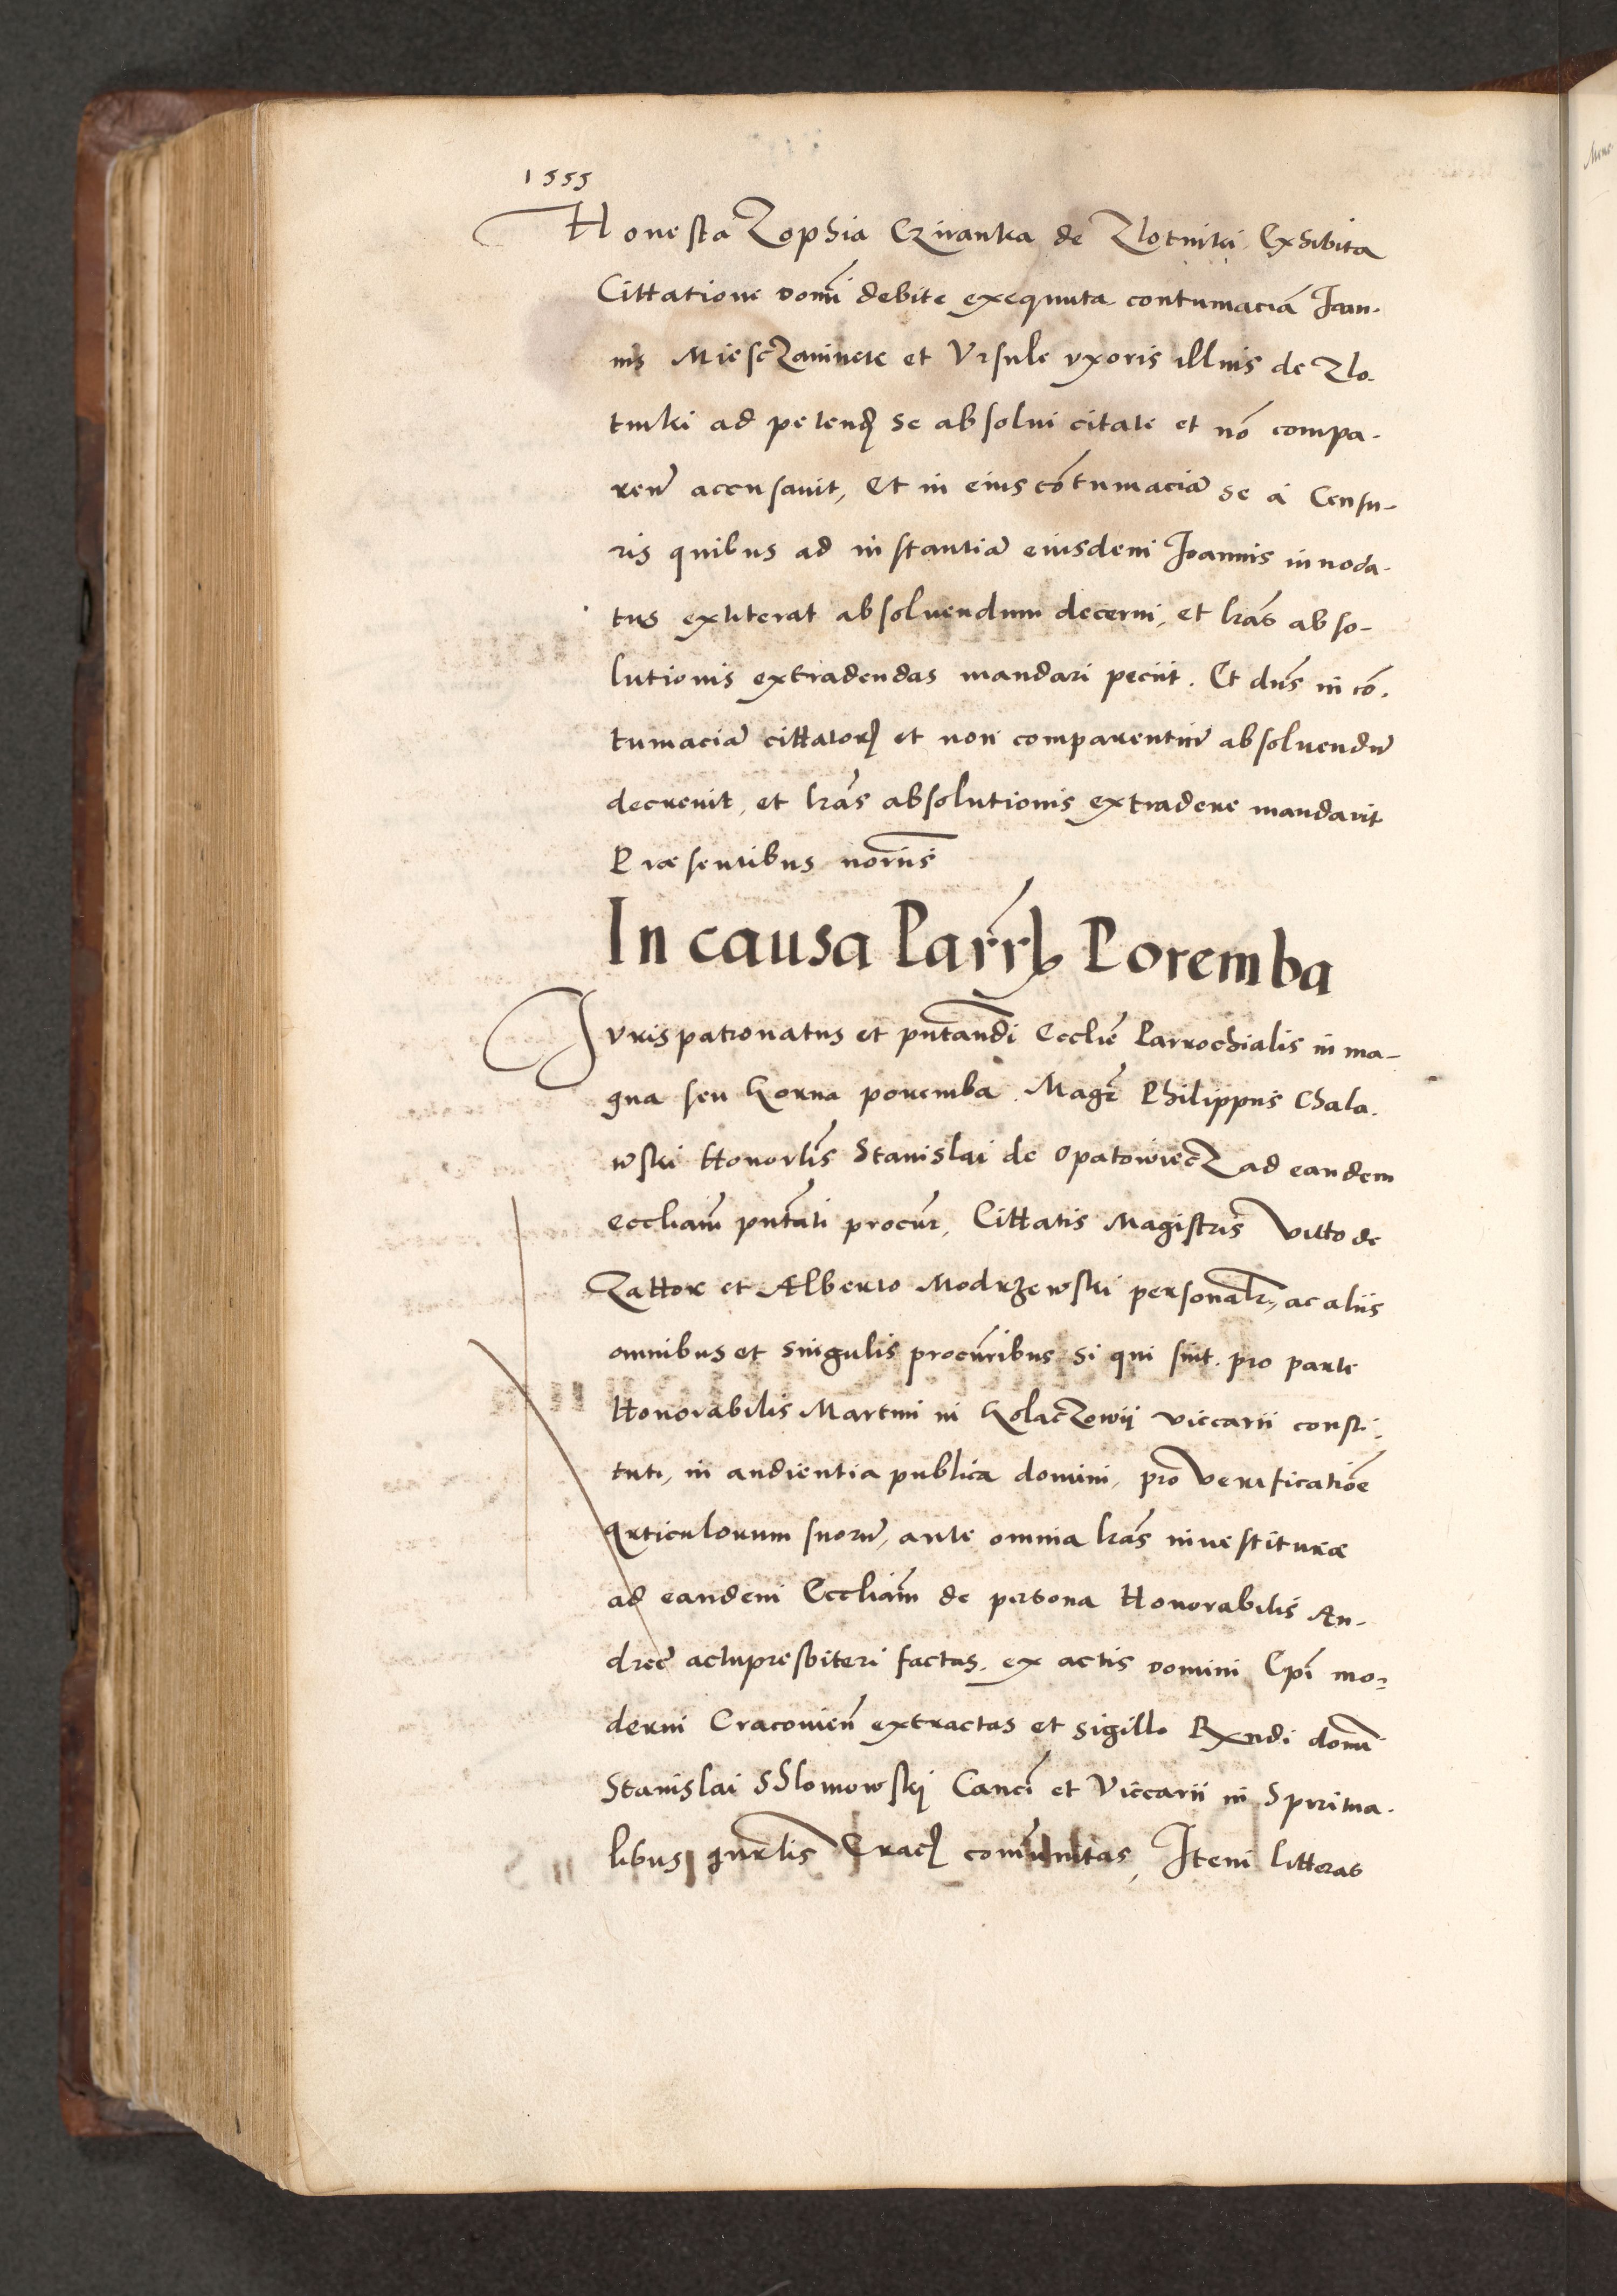 1555
Honesta Zophia Cziranka de Zlotniki Exhibita
Cittatione domĩ debite exequuta contumaciã Joan-
nis Miesczaninete et Vrsule vxoris illius de Zlo-
tniki ad petend se absolui citate et nõ compa-
ren̄ accusauit, Et in eius cõtumaciã se a Censu-
ris quibus ad instantiã eiusdem Joannis innoda-
tus extiterat absoluendum decerni, et lr̃as abso-
lutionis extradendas mandari peciit. Et dñs in cõ-
tumaciã cittatorʒ et non comparentiũ absoluendũ
decreuit, et lr̃as absolutionis extradere mandauit
Præsentibus norijs
In causa Parrłis Poremba
Jvrispatronatus et pñtandi Ecclie Parrochialis in ma-
gna seu Gorna poremba. Magr̃ Philippus Chala-
wski Honorlis Stanislai de Opatowiecz ad eandem
eccliam pñtati procur̃, Cittatis Magistris Vitto de
Zattor et Alberto Modrzewski personalr̃, ac aliis
omnibus et singulis procur̃ibus si qui sint pro parte
Honorabilis Martini in Kolaczowij viccarii consti-
tuti, in audientia publica domini, pro verificatiõe
articulorum suorũ, ante omnia lr̃as inuestituræ
ad eandem Eccliam de persona Honorabilis An-
dreę actupresbiteri factas ex actis domini Epĩ mo-
derni Cracouien̄ extractas et sigillo Rndi domĩ
Stanislai Slomowskj Cancĩ et Viccarii in Spiritua-
libus gnrlis Crac comũnitas, Item litteras